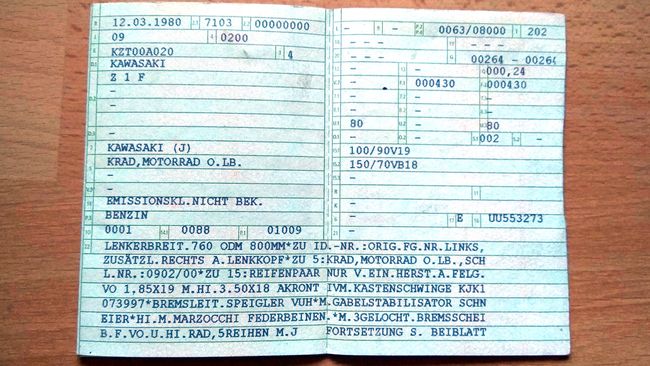 12.03.1980 7103 00000000 - - 0063/08000 202
09 0200 - - -
KZT00A020 4 00264 - 00264
KAWASAKI - - 000,24
Z 1 F - 000430 000430
-
- 80 - 80
- 002 -
KAWASAKI (J) 100/90V19
KRAD,MOTORRAD O.LB. 150/70VB18
- -
-
EMISSIONSKL.NICHT BEK. -
BENZIN - E UU553273
0001 0088 01009 -
LENKERBREIT.760 ODM 800MM*ZU ID.-NR.:ORIG.FG.NR.LINKS,
ZUSÄTZL.RECHTS A.LENKKOPF*ZU 5:KRAD,MOTORRAD O.LB.,SCH
L.NR.:0902/00*ZU 15:REIFENPAAR NUR V.EIN.HERST.A.FELG.
VO 1.85X19 M.HI.3.50X18 AKRONT IVM.KASTENSCHWINGE KJK1
073997*BREMSLEIT.SPEIGLER VUH*M.GABELSTABILISATOR SCHN
EIER*HI.M.MARZOCCHI FEDERBEINEN.*M.3GELOCHT.BREMSSCHEI
B.F.VO.U.HI.RAD,5REIHEN M.J FORTSETZUNG S. BEIBLATT